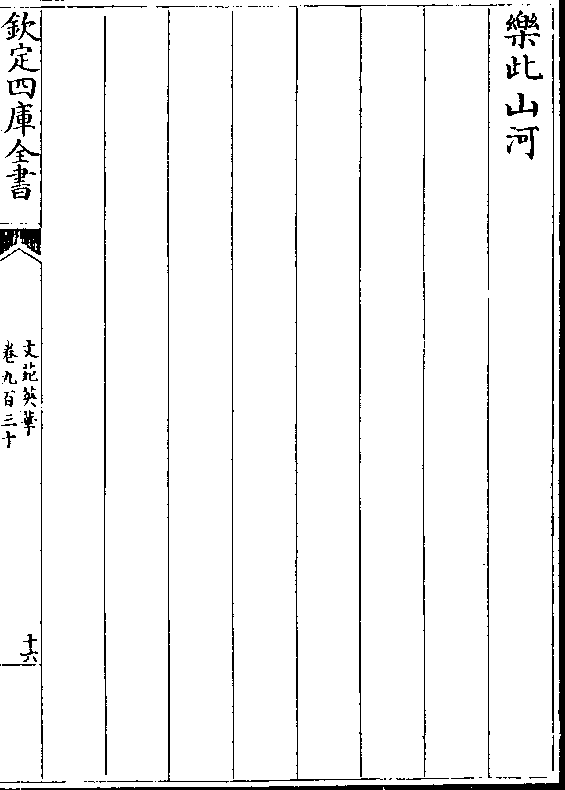 樂此山河
欽定四庫全書
文苑英華
卷九百三十
十六